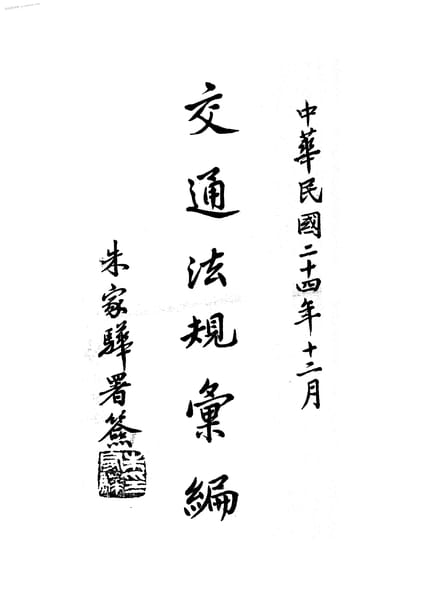 中華民國二十四年十二月
交通法規彙編
朱家驊署簽